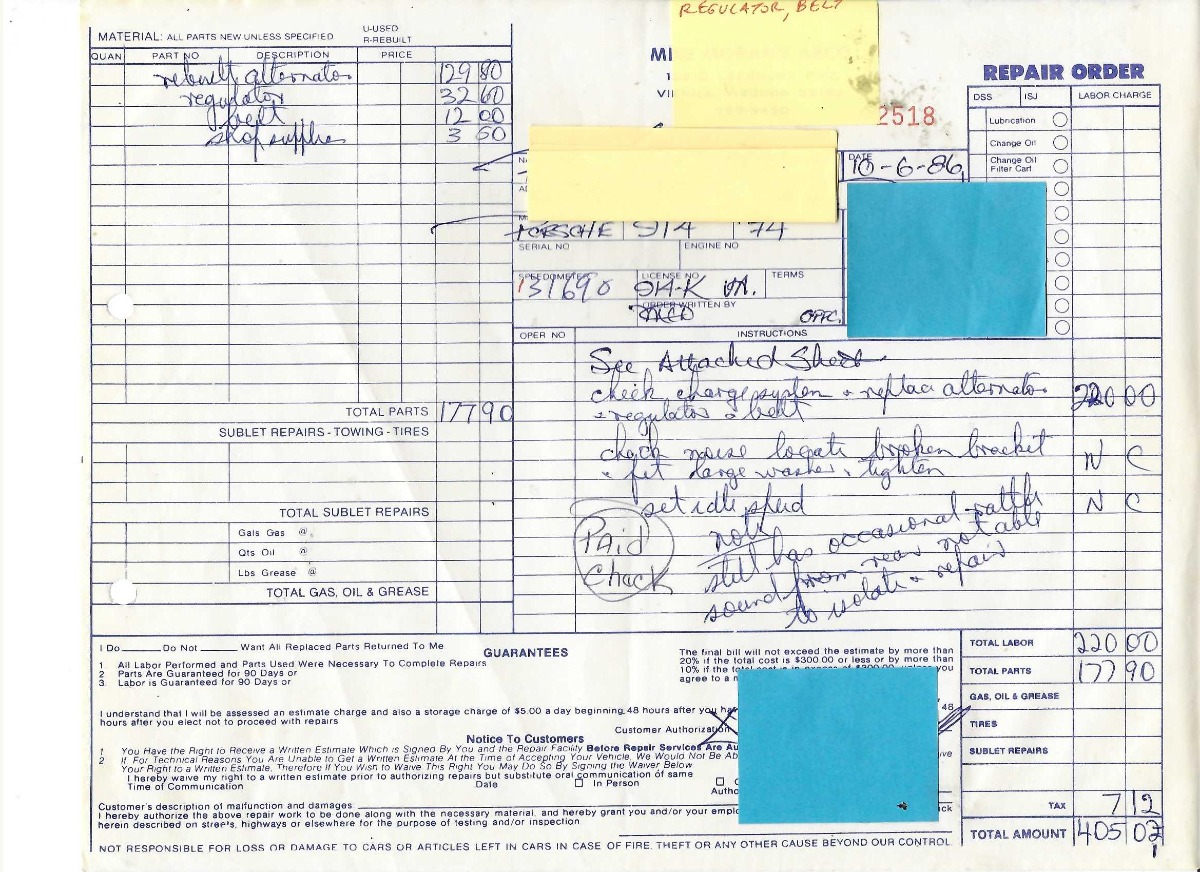 REGULATOR, BELT
MATERIAL: ALL PARTS NEW UNLESS SPECIFIED
U-USED
R-REBUILT
QUAN PART NO DESCRIPTION PRICE
rebuilt alternator 129 80
regulator 32 60
belt 12 00
shop supplies 3 50
TOTAL PARTS 177 90
SUBLET REPAIRS - TOWING - TIRES
TOTAL SUBLET REPAIRS
Gals Gas @
Qts Oil @
Lbs Grease @
TOTAL GAS, OIL & GREASE
MI
VI
2518
REPAIR ORDER
DSS ISJ LABOR CHARGE
Lubrication
Change Oil
Change Oil
Filter Cart
DATE
10-6-86
PORSCHE 914 '74
SERIAL NO ENGINE NO
SPEEDOMETER LICENSE NO TERMS
131690 914-K VA.
ORDER WRITTEN BY
OPER NO INSTRUCTIONS
See Attached Sheet
check charge system & replace alternator 220 00
& regulator & belt
check noise locate broken bracket
& fit large washer & tighten N C
set idle speed N C
Paid
Check
note
still has occasional rattle
sound from rear not able
to isolate & repair
I Do Do Not Want All Replaced Parts Returned To Me
GUARANTEES
1. All Labor Performed and Parts Used Were Necessary To Complete Repairs
2 Parts Are Guaranteed for 90 Days or
3. Labor is Guaranteed for 90 Days or
The final bill will not exceed the estimate by more than
20% if the total cost is $300.00 or less or by more than
10% if the total cost is in excess of $300.00 unless you
agree to a
I understand that I will be assessed an estimate charge and also a storage charge of $5.00 a day beginning 48 hours after you 48
hours after you elect not to proceed with repairs
Customer Authorization X
Notice To Customers
1 You Have the Right to Receive a Written Estimate Which is Signed By You and the Repair Facility Before Repair Services Are
2 If For Technical Reasons You Are Unable to Get a Written Estimate At the Time of Accepting Your Vehicle, We Would Not Be
Your Right to a Written Estimate, Therefore If You Wish to Waive This Right You May Do So By Signing the Waiver Below
I hereby waive my right to a written estimate prior to authorizing repairs but substitute oral communication of same
Time of Communication Date In Person
Customer's description of malfunction and damages
I hereby authorize the above repair work to be done along with the necessary material, and hereby grant you and/or your
herein described on streets, highways or elsewhere for the purpose of testing and/or inspection.
NOT RESPONSIBLE FOR LOSS OR DAMAGE TO CARS OR ARTICLES LEFT IN CARS IN CASE OF FIRE, THEFT OR ANY OTHER CAUSE BEYOND OUR CONTROL
TOTAL LABOR 220 00
TOTAL PARTS 177 90
GAS, OIL & GREASE
TIRES
SUBLET REPAIRS
TAX 7 12
TOTAL AMOUNT 405 02